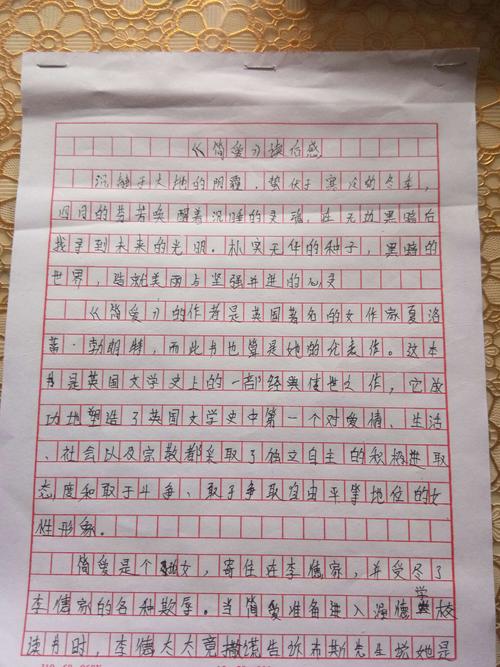 《简爱》读后感
沉融于大地的阴霾,蛰伏于寒冷的冬季,
四月的芳若唤醒着沉睡的灵魂,在无边黑暗后
找寻到未来的光明。朴实无华的种子,黑暗的
世界,造就美丽与坚强并进的心灵
《简爱》的作者是英国著名的女作家夏洛
蒂·勃朗特,而此书也算是她的代表作。这本
书是英国文学史上的一部经典传世之作,它成
功地塑造了英国文学史中第一个对爱情、生活
、社会以及宗教都采取了独立自主的积极进取
态度和敢于斗争、敢于争取自由平等地位的女
性形象。
简爱是个女,寄住在李德家,并受尽了
李德家的各种欺辱。当简爱准备进入温德学校
读书时,李德太太竟撒谎告诉布斯先生说她是